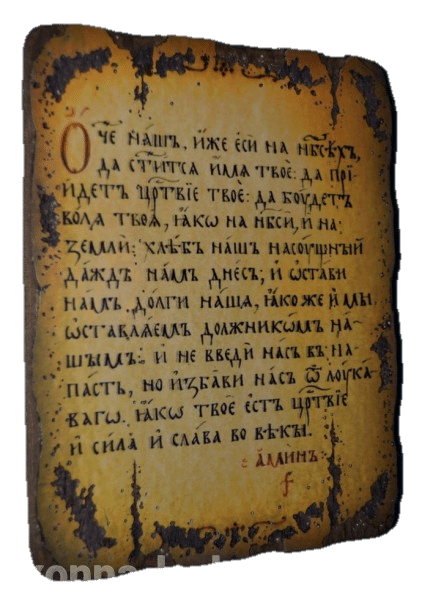 Ѻ҃че на́шъ, и́же єсѝ на нб҃сѣ́хъ,
да ст҃и́тсѧ и́мѧ твоѐ: да прї-
и́детъ црⷭ҇твїе твоѐ: да бу́детъ
во́лѧ твоѧ̀, ꙗ́кѡ на нб҃сѝ, и на
землѝ: хлѣ́бъ на́шъ насоу́щный
да́ждь на́мъ дне́сь, и ѡста́ви
на́мъ до́лги на́шѧ, ꙗ́коже и мы̀
ѡставлѧ́емъ должникѡ́мъ на́-
шымъ: и не введѝ на́съ въ на-
па́сть, но изба́ви на́съ ѿ лоука́-
вагѡ. ꙗ́кѡ твоѐ є́сть црⷭ҇твїе
и си́ла и сла́ва во вѣ́кы.
а́минь: